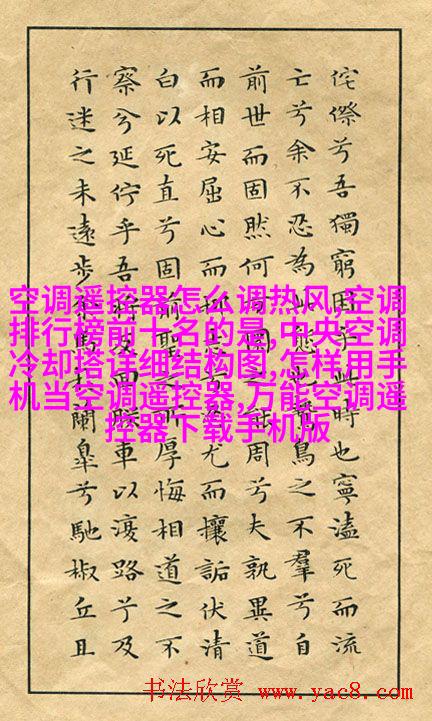 侘傺兮吾獨窮困乎此時也寧溘死而流
亡兮余不忍為此態也鷙鳥之不羣兮自
前世而固然何方圜之能周兮夫孰異道
而相安屈心而抑志兮忍尤而攘詬伏清
白以死直兮固前聖之所厚悔相道之不
察兮延佇乎吾將反回朕車以復路兮及
行迷之未遠步余馬於蘭皐兮馳椒丘且
空调遥控器怎么调热风,空调
排行榜前十名的是,中央空调
冷却塔详细结构图,怎样用手
机当空调遥控器,万能空调遥
控器下载手机版
书法欣赏 www.yac8.com